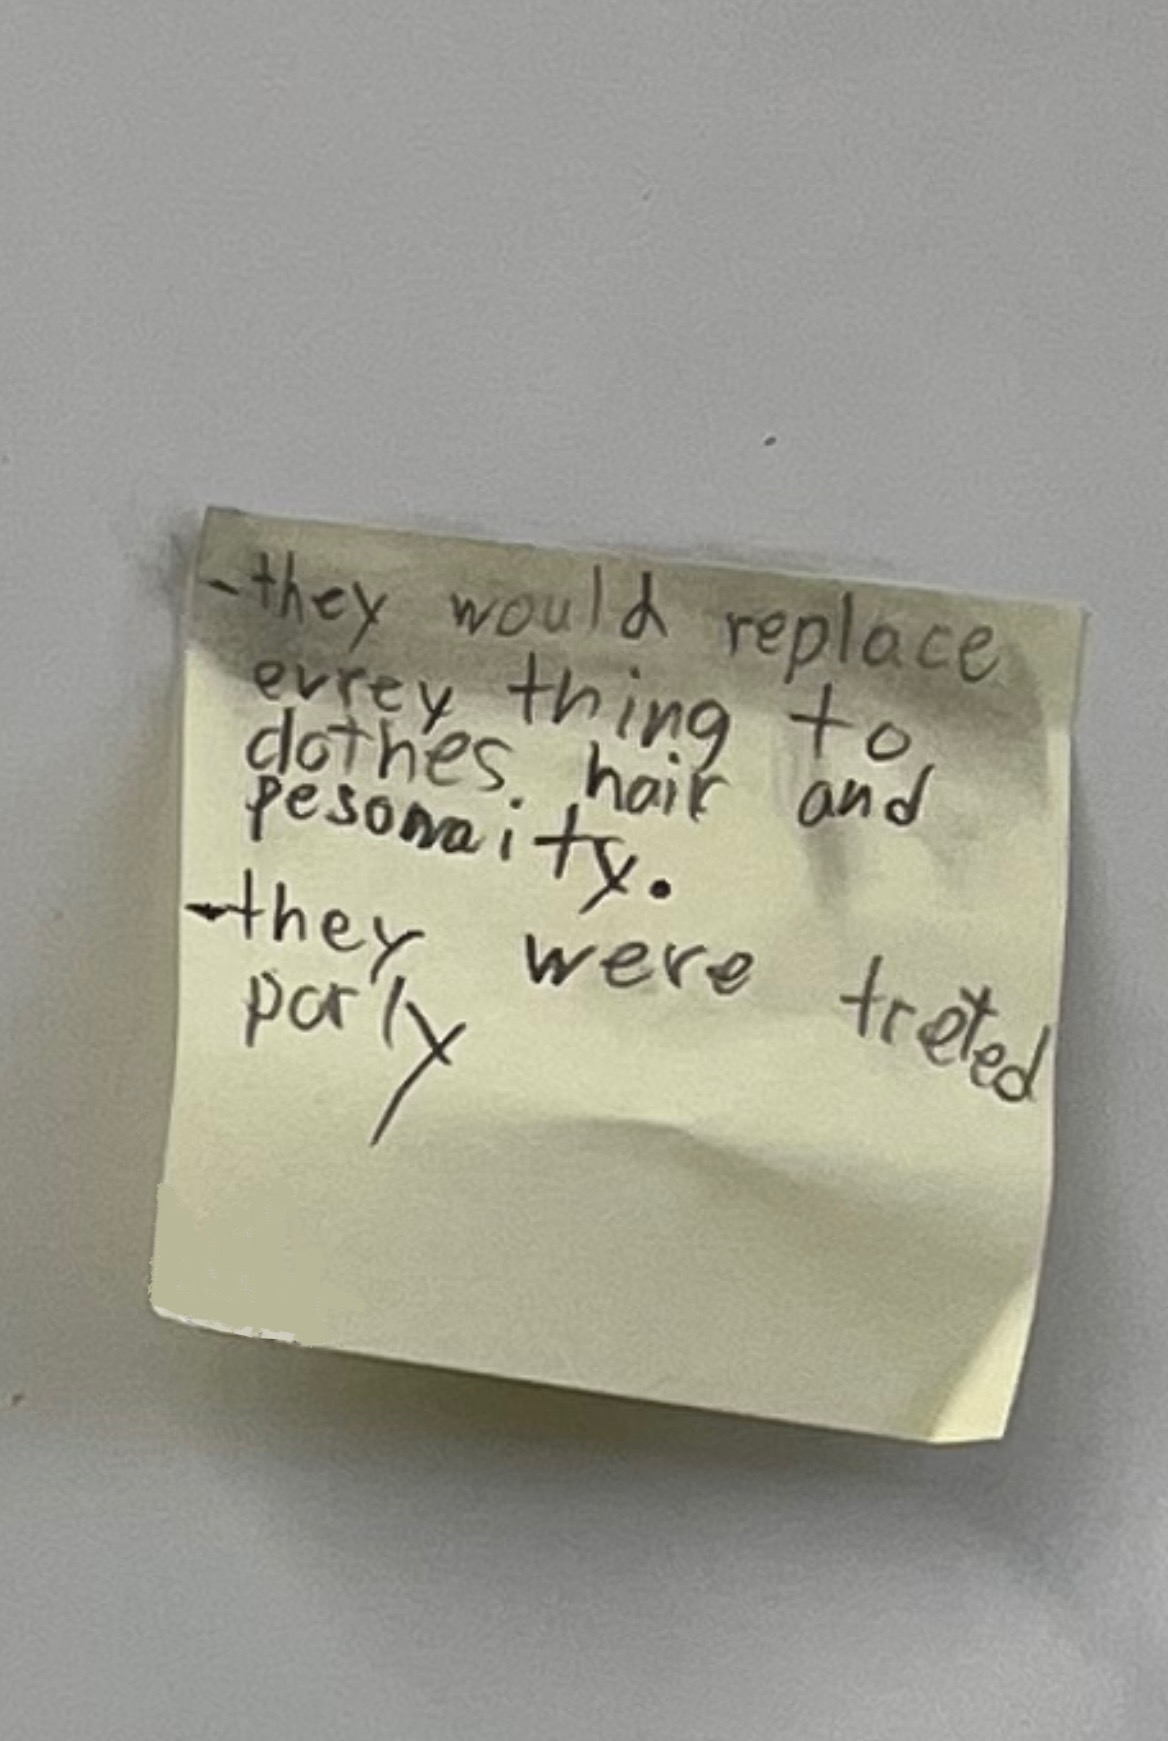 -they would replace
evrey thing to
clothes, hair and
pesonaity.
-they were treted
porly